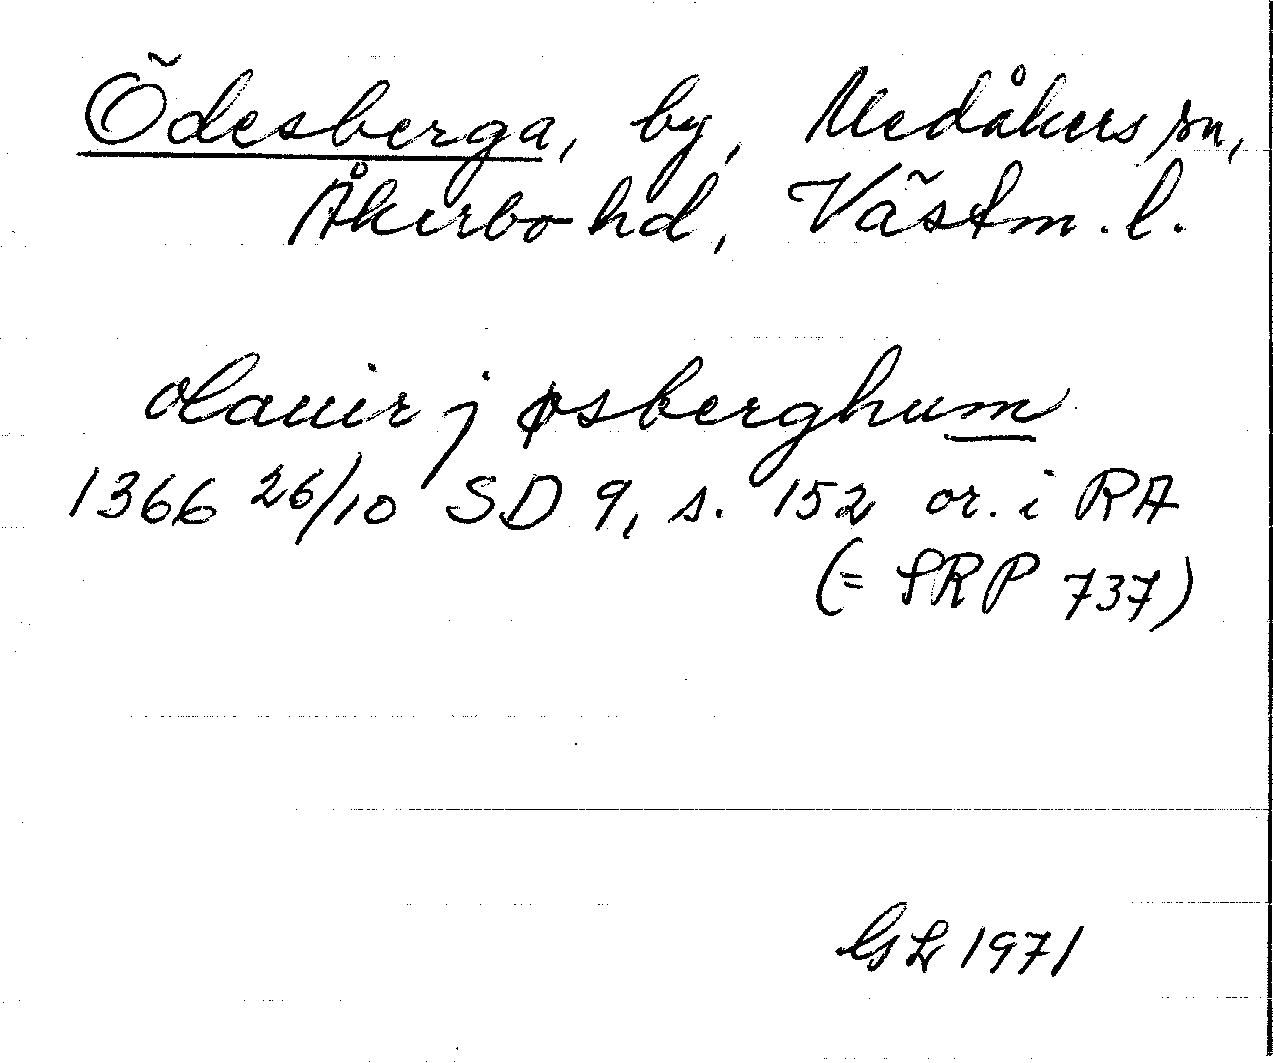 Ödesberga, by, Medåkers sn,
Åkerbo hd, Västm. l.
olauir j øsberghum
1366 26/10 SD 9, s. 152 or. i RA
(= SRP 737)
GL 1971